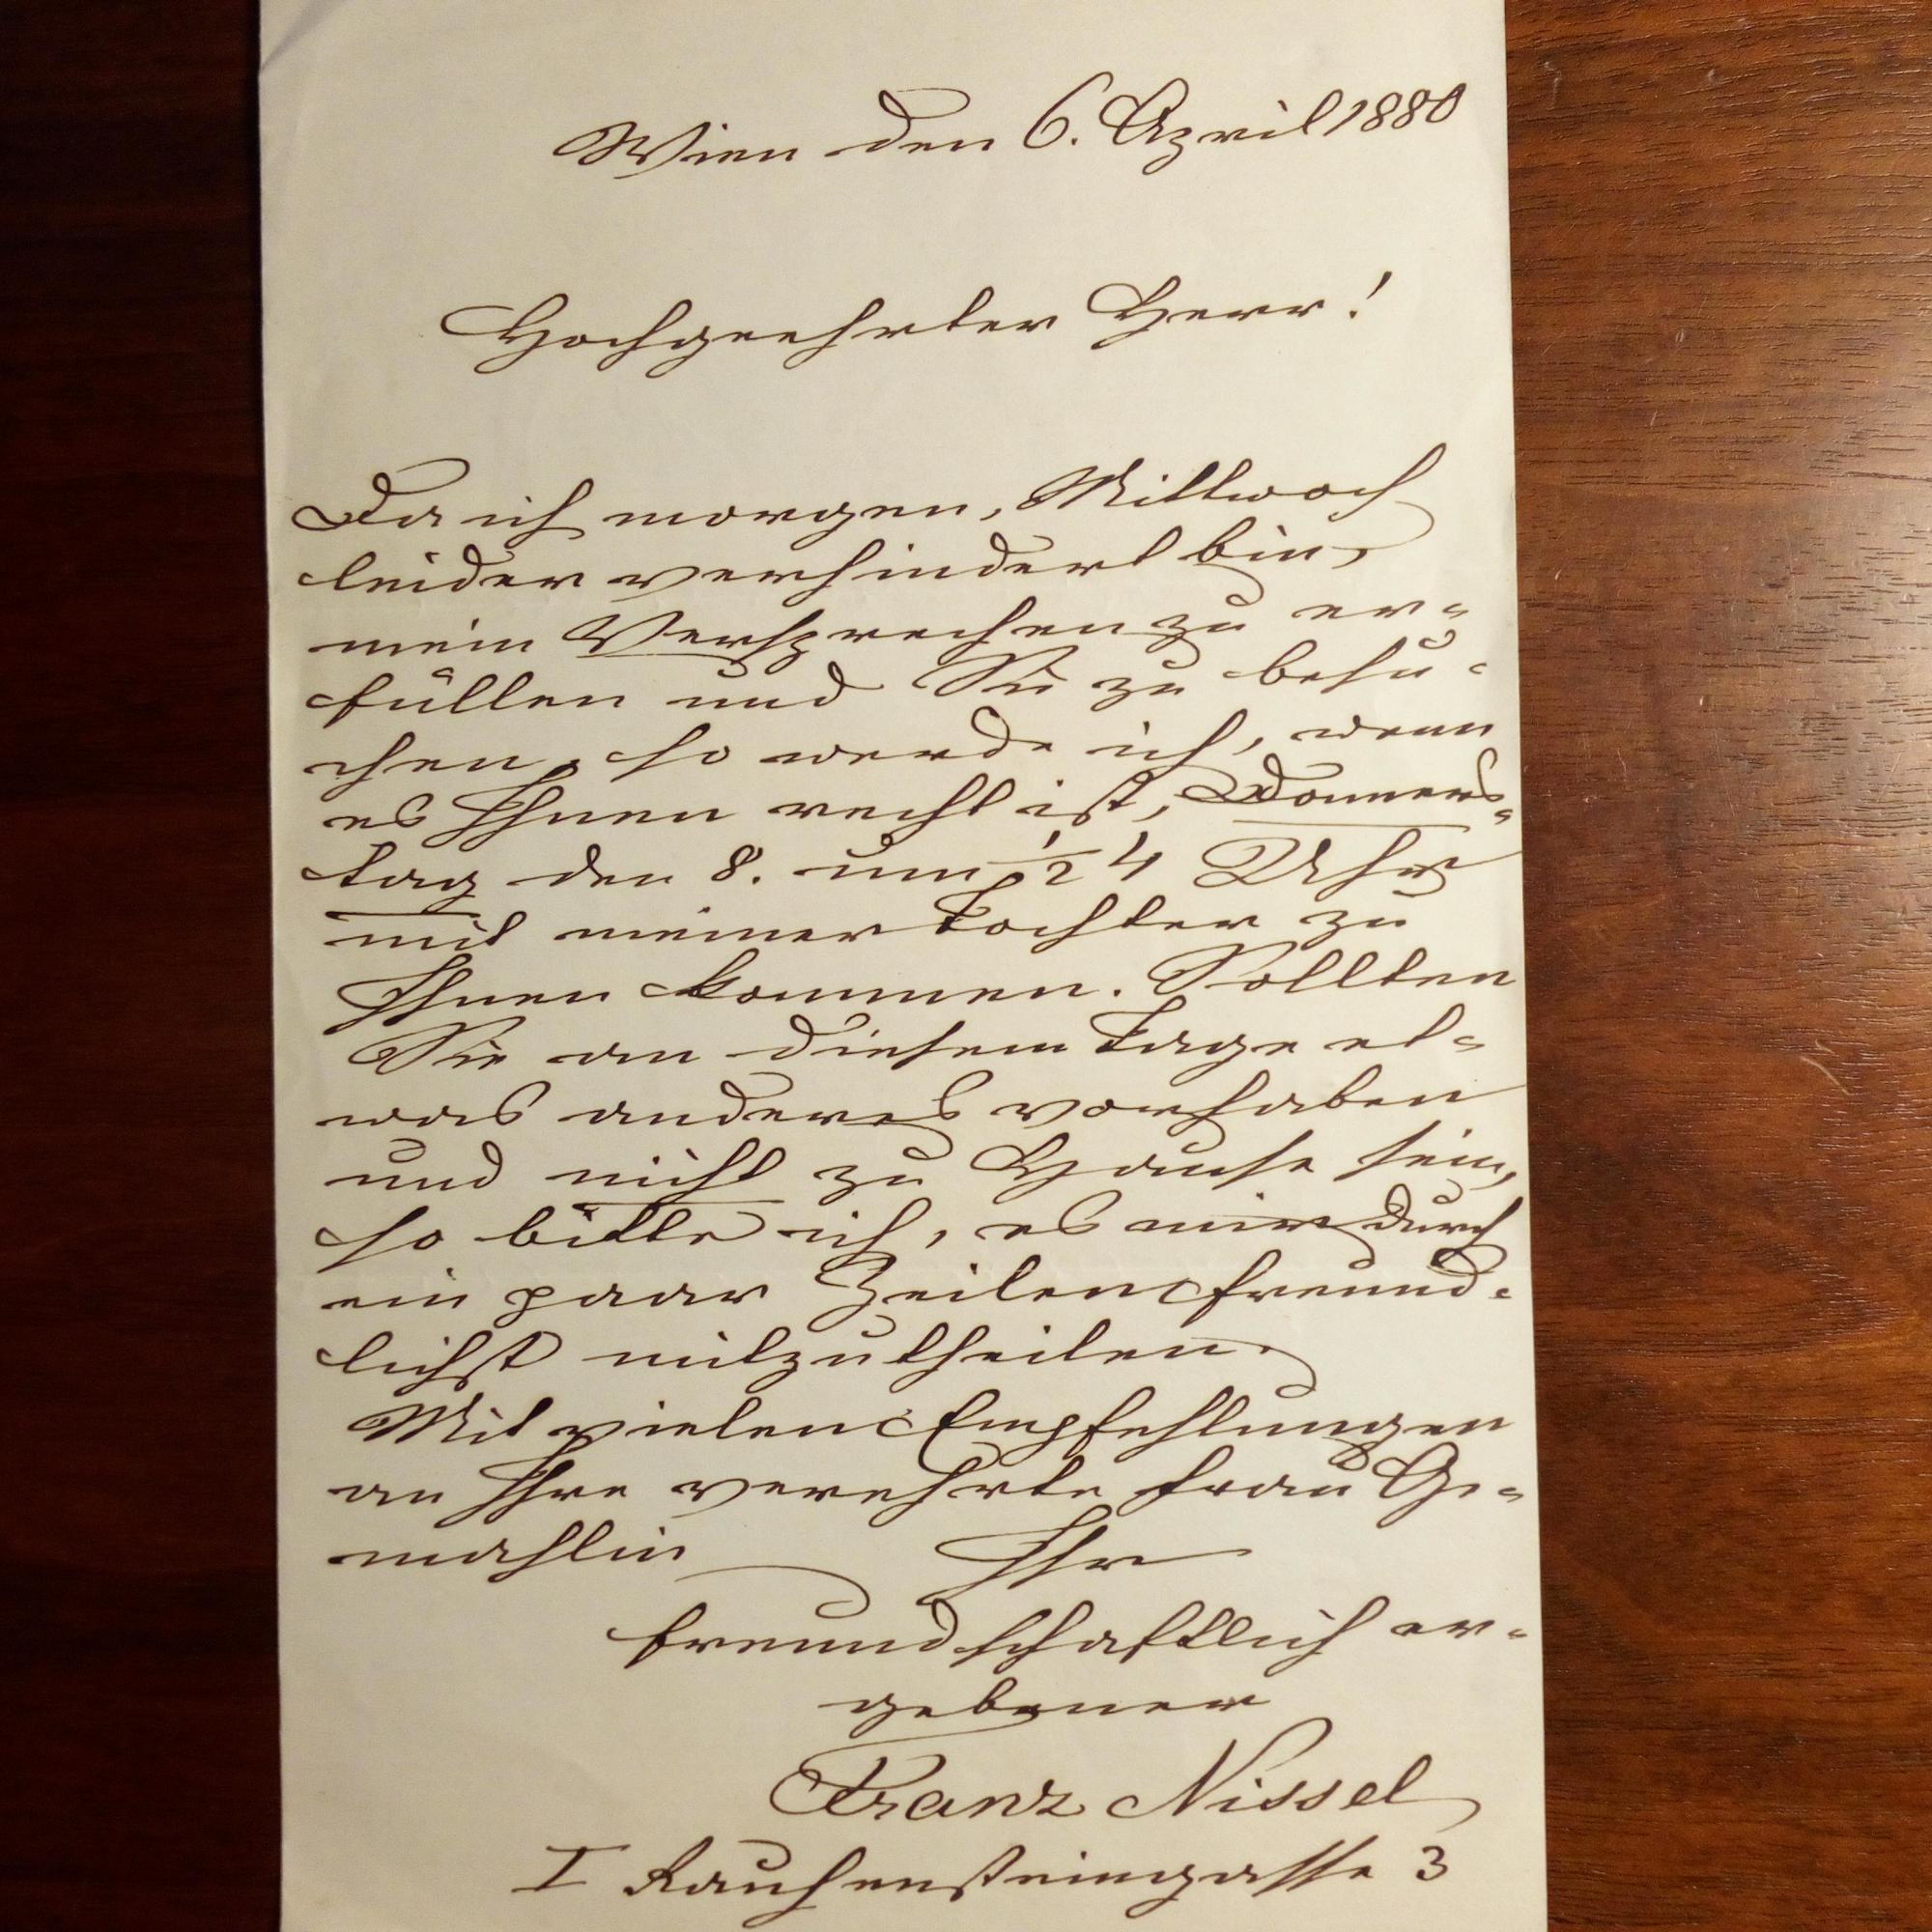 Wien den 6. April 1880
Hochgeehrter Herr!
Da ich morgen, Mittwoch
leider verhindert bin,
mein Versprechen zu er-
füllen und Sie zu besu-
chen, so werde ich, wenn
es Ihnen recht ist, Donners-
tag den 8. um ½ 4 Uhr
mit meiner Tochter zu
Ihnen kommen. Sollten
Sie an diesem Tage et-
was anderes vorhaben
und nicht zu Hause sein,
so bitte ich, es mir durch
ein paar Zeilen freund-
lichst mitzutheilen.
Mit vielen Empfehlungen
an Ihre verehrte Frau Ge-
mahlin Ihr
freundschaftlich er-
gebener
Franz Nissel
I Rauhensteingasse 3